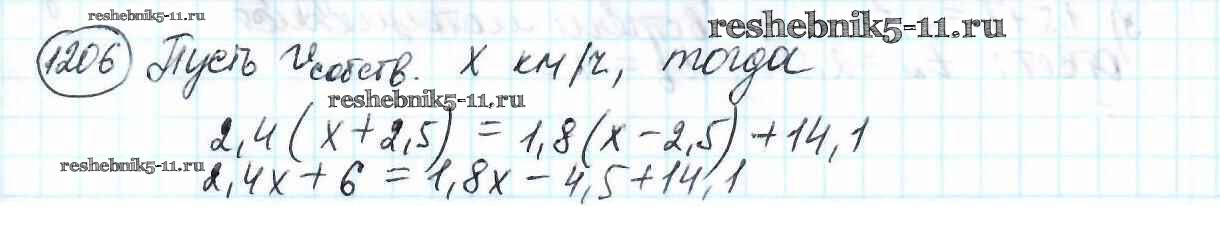 reshebnik5-11.ru
reshebnik5-11.ru
1206 Пусть Vсобств. x км/ч, тогда
reshebnik5-11.ru
2,4(x+2,5) = 1,8(x-2,5)+14,1
reshebnik5-11.ru
2,4x+6 = 1,8x-4,5+14,1